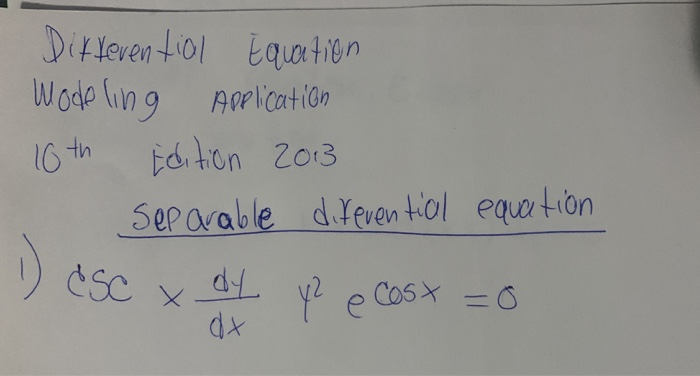 Differential Equation
Modeling Application
10th Edition 2013
Separable diferential equation
1) csc x dy/dx y² e^cosx = 0